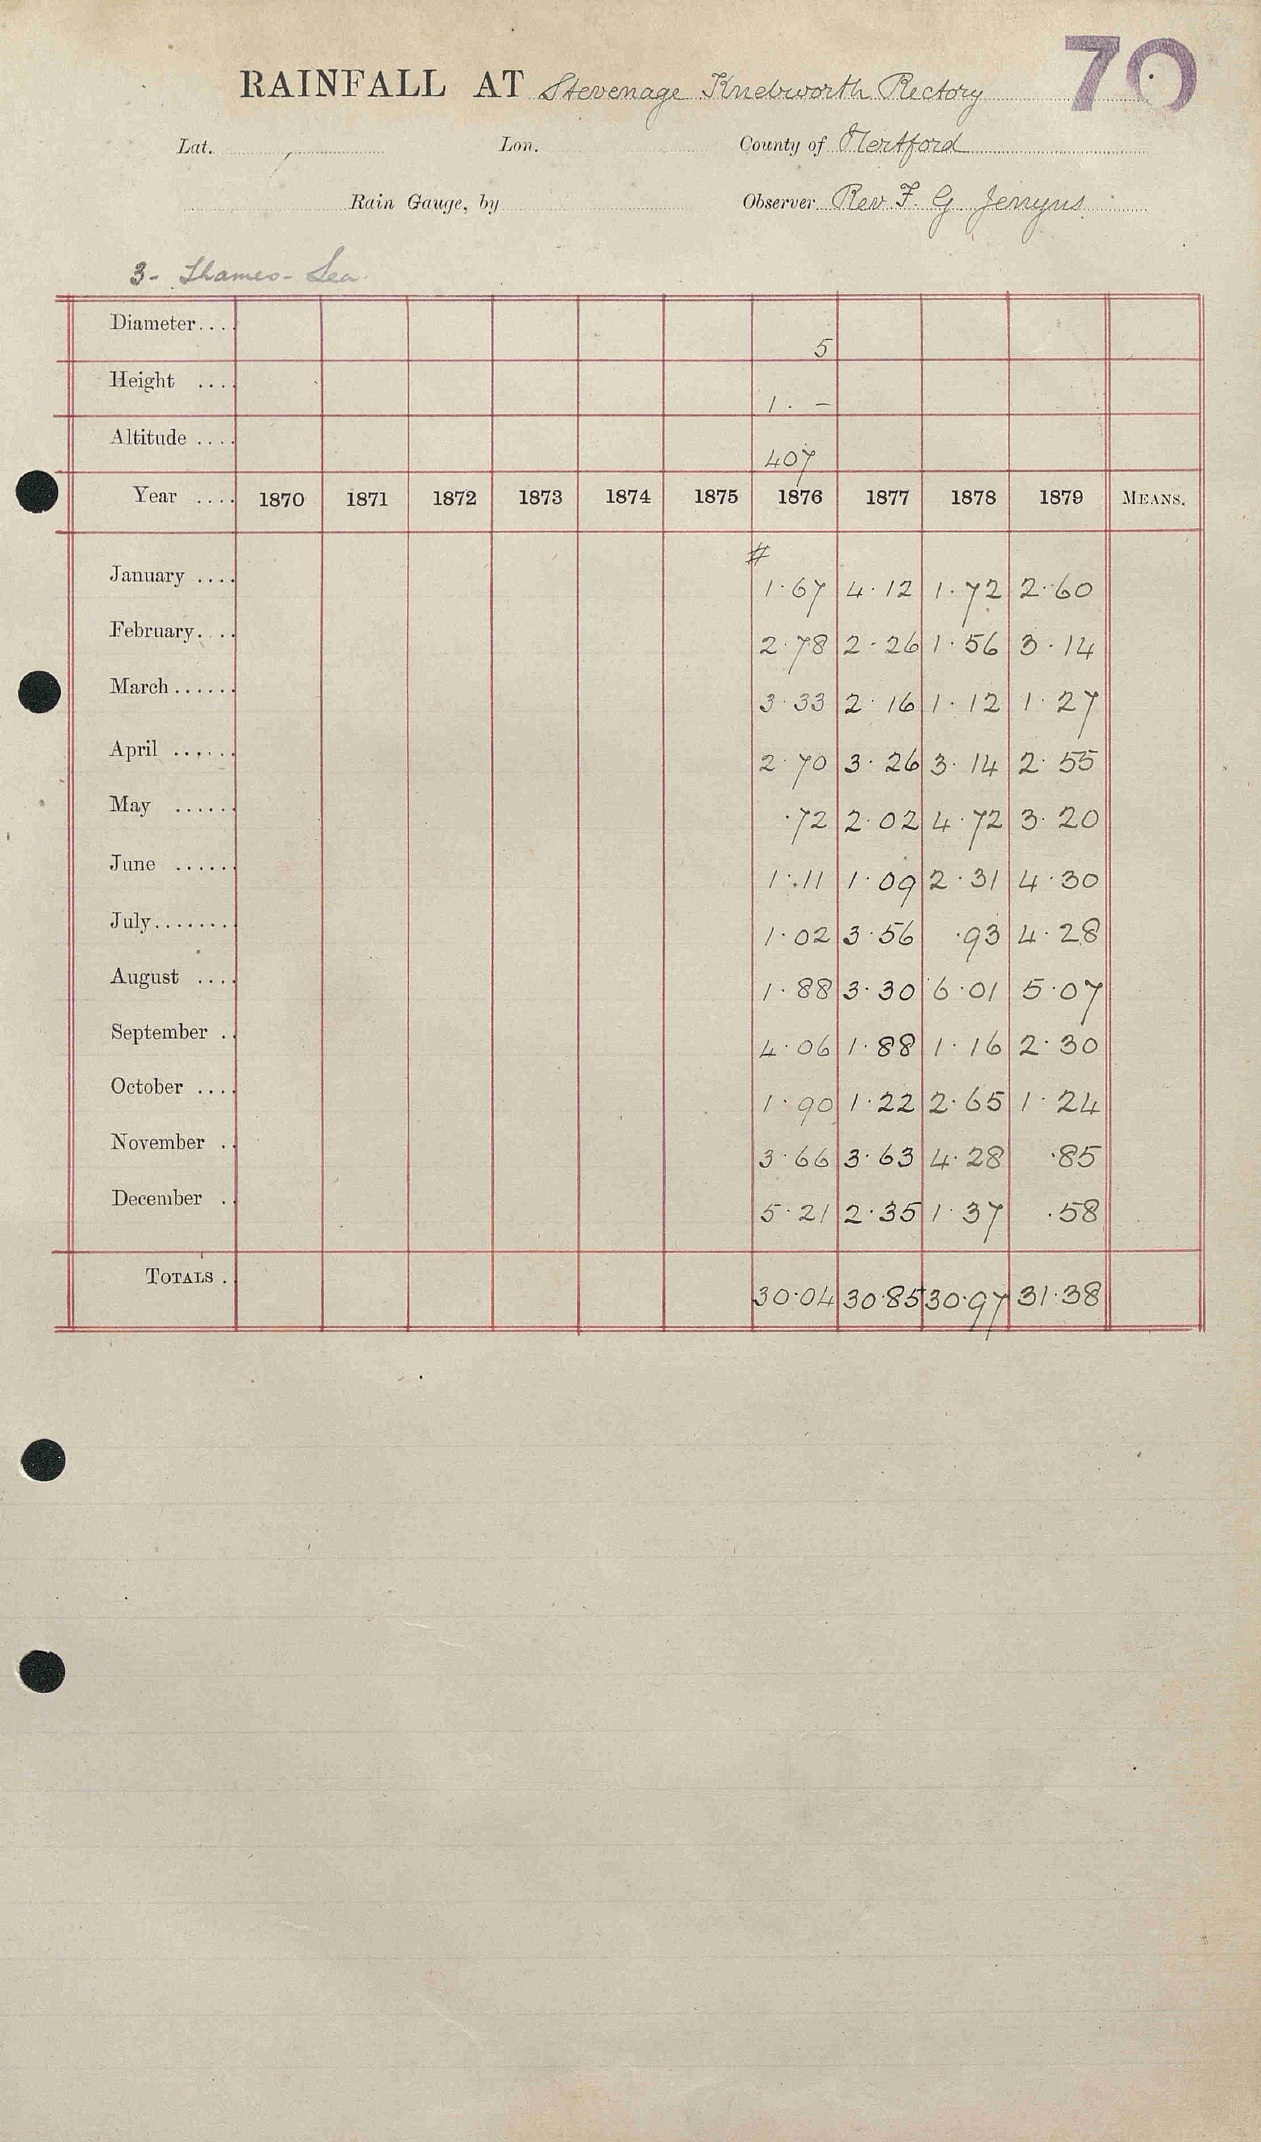 70
RAINFALL AT Stevenage Knebworth Rectory
Lat. Lon. County of Hertford
Rain Gauge, by Observer Rev. F. G. Jenyns
3 - Thames - Lea.
Diameter.... 5
Height .... 1. -
Altitude .... 407
Year .... 1870 1871 1872 1873 1874 1875 1876 1877 1878 1879 MEANS.
#
January .... 1.67 4.12 1.72 2.60
February.... 2.78 2.26 1.56 3.14
March...... 3.33 2.16 1.12 1.27
April ...... 2.70 3.26 3.14 2.55
May ...... .72 2.02 4.72 3.20
June ...... 1.11 1.09 2.31 4.30
July....... 1.02 3.56 .93 4.28
August .... 1.88 3.30 6.01 5.07
September .. 4.06 1.88 1.16 2.30
October .... 1.90 1.22 2.65 1.24
November .. 3.66 3.63 4.28 .85
December .. 5.21 2.35 1.37 .58
TOTALS . 30.04 30.85 30.97 31.38